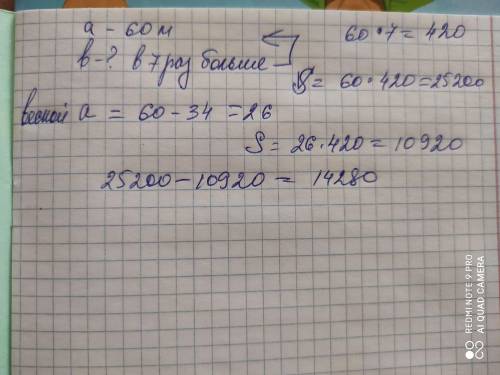 a - 60 м
60 · 7 = 420
в -? в 7 раз больше
S = 60 · 420 = 25200
весной a = 60 - 34 = 26
S = 26 · 420 = 10920
25200 - 10920 = 14280
REDMI NOTE 9 PRO
AI QUAD CAMERA